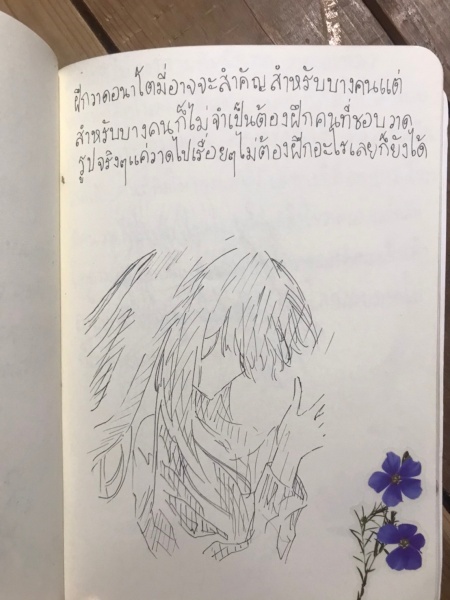 ฝึกวาดอนาโตมี่อาจจะสำคัญ สำหรับบางคนแต่
สำหรับบางคนก็ไม่จำเป็นต้องฝึกคนที่ชอบวาด
รูปจริงๆแค่วาดไปเรื่อยๆไม่ต้องฝึกอะไรเลยก็ยังได้